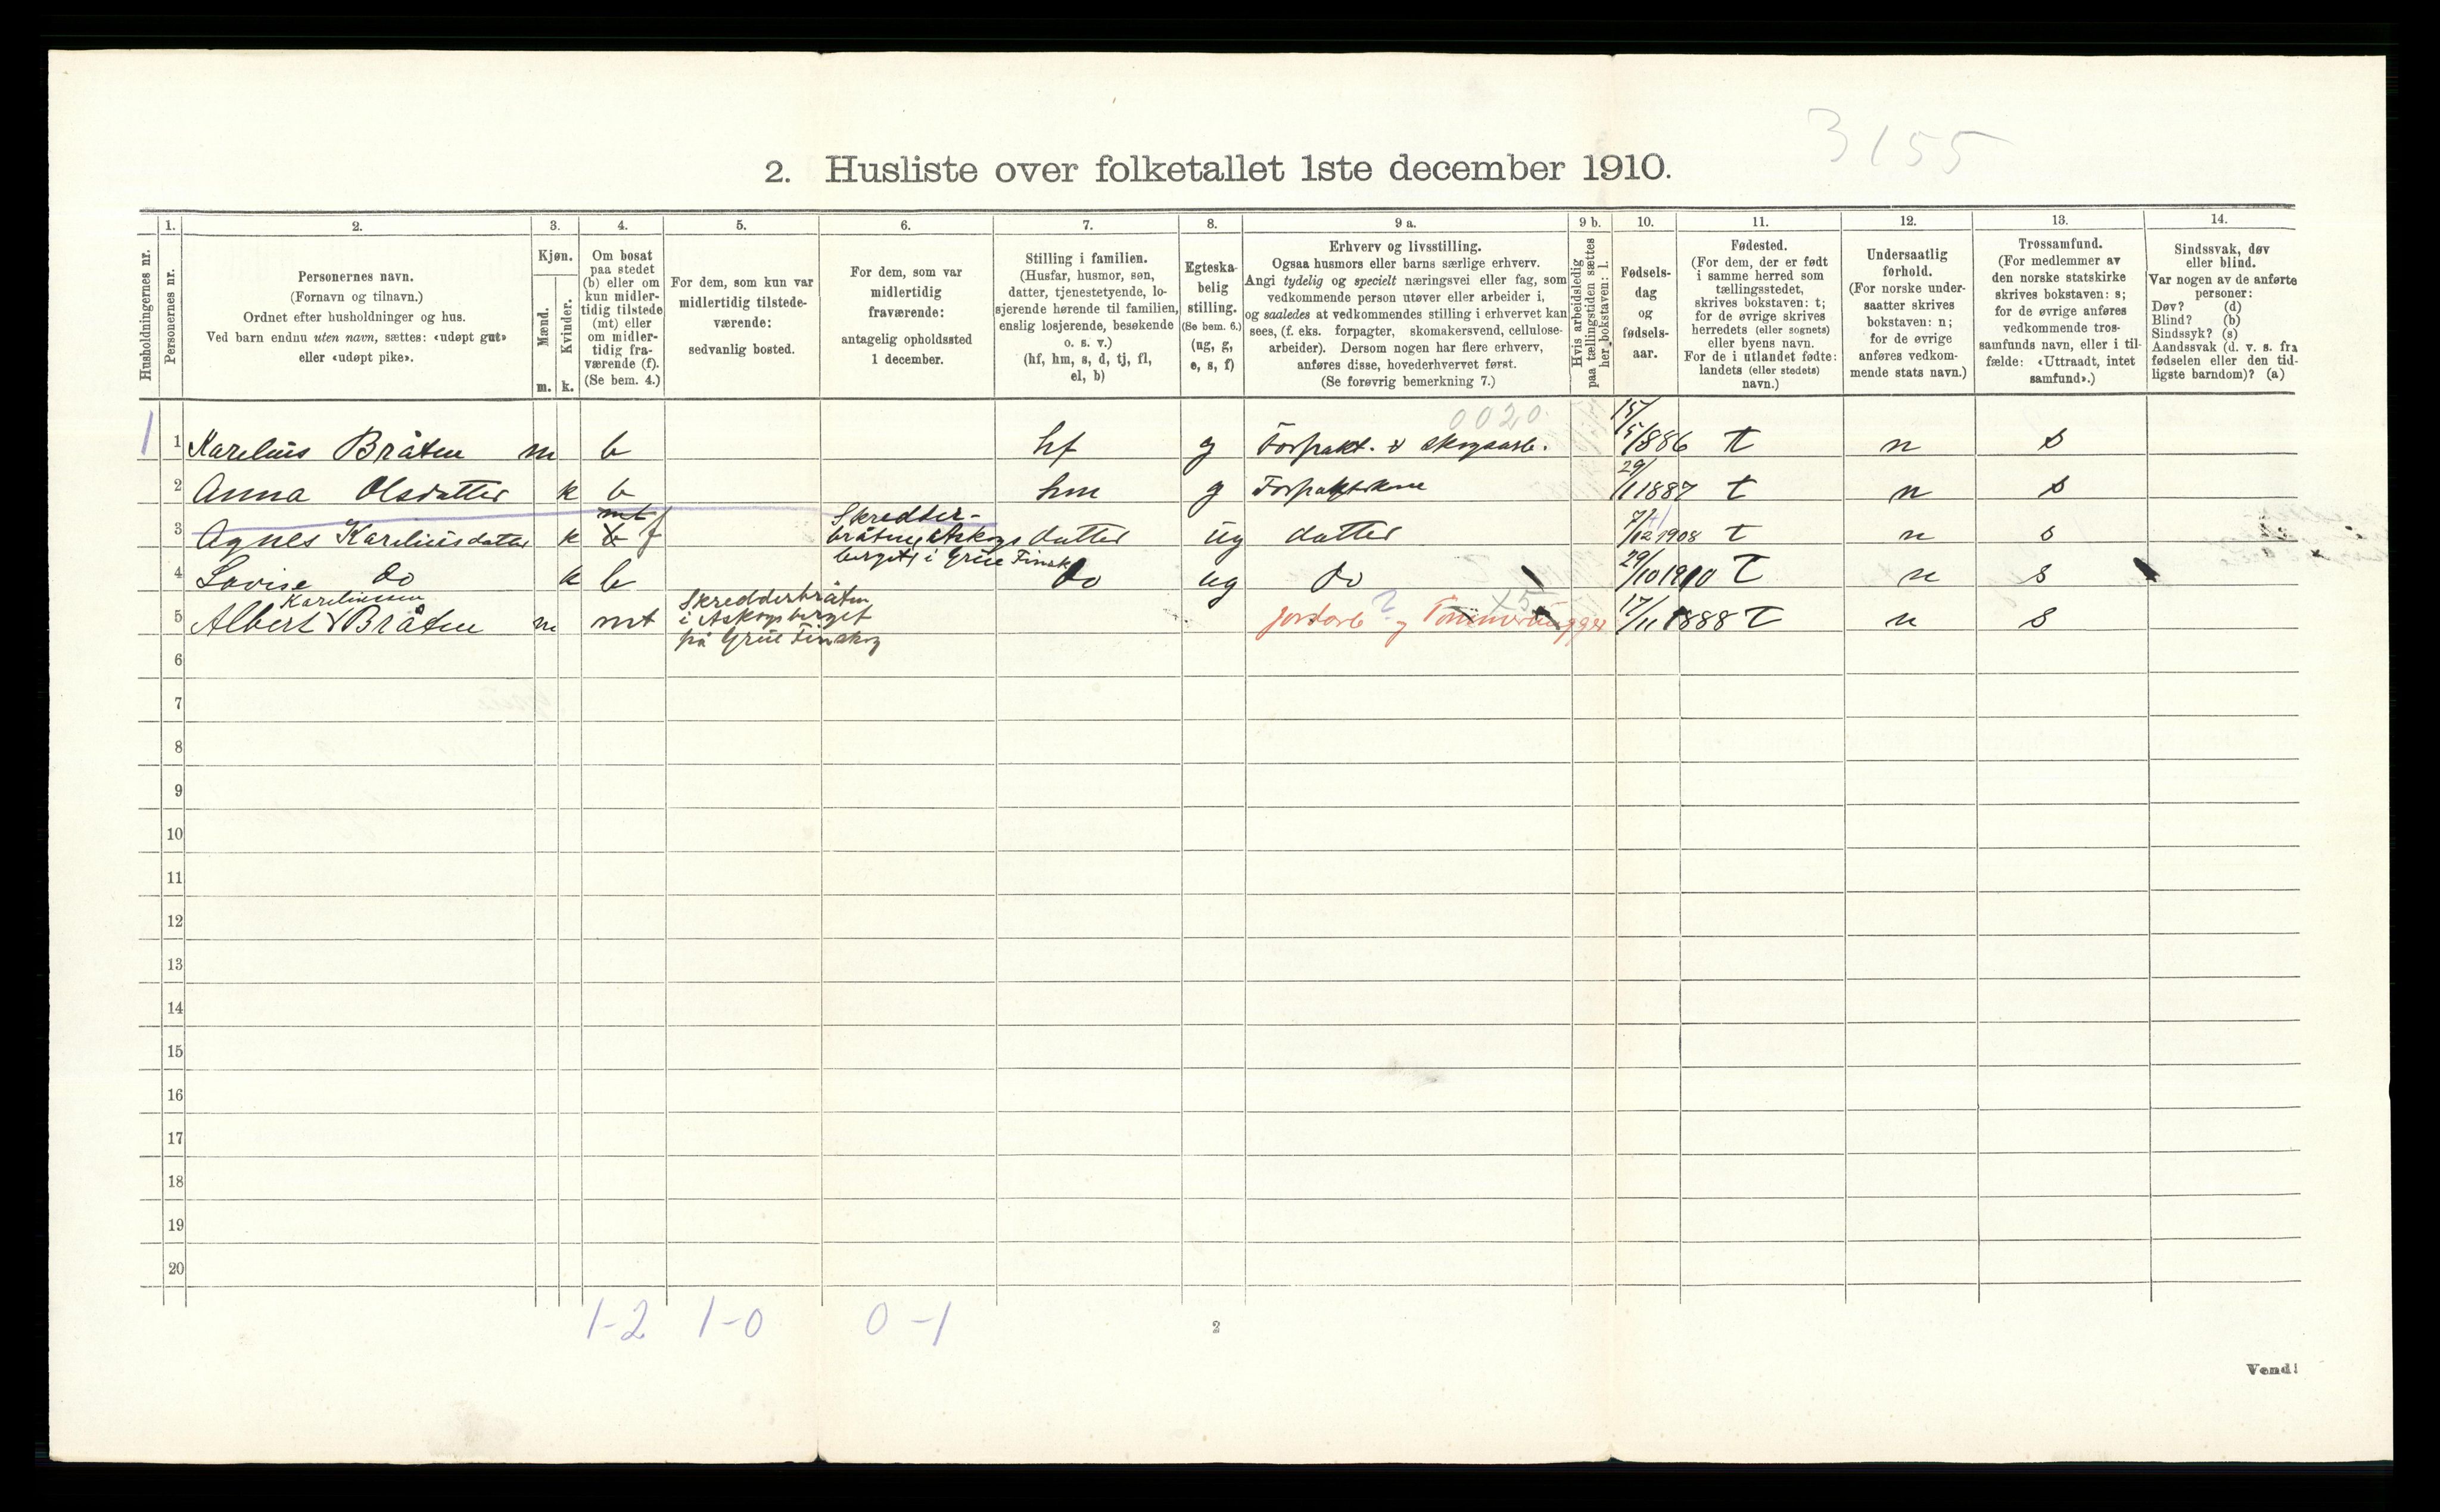 3155
2. Husliste over folketallet 1ste december 1910.
Husholdningernes nr.
1.
Personernes nr.
2.
Personernes navn.
(Fornavn og tilnavn.)
Ordnet efter husholdninger og hus.
Ved barn endnu uten navn, sættes: «udøpt gut»
eller «udøpt pike».
3.
Kjøn.
Mænd.
m.
Kvinder.
k.
4.
Om bosat
paa stedet
(b) eller om
kun midler-
tidig tilstede
(mt) eller
om midler-
tidig fra-
værende (f).
(Se bem. 4.)
5.
For dem, som kun var
midlertidig tilstede-
værende:
sedvanlig bosted.
6.
For dem, som var
midlertidig
fraværende:
antagelig opholdssted
1 december.
7.
Stilling i familien.
(Husfar, husmor, søn,
datter, tjenestetyende, lo-
sjerende hørende til familien,
enslig losjerende, besøkende
o. s. v.)
(hf, hm, s, d, tj, fl,
el, b)
8.
Egteska-
belig
stilling.
(Se bem. 6.)
(ug, g,
e, s, f)
9 a.
Erhverv og livsstilling.
Ogsaa husmors eller barns særlige erhverv.
Angi tydelig og specielt næringsvei eller fag, som
vedkommende person utøver eller arbeider i,
og saaledes at vedkommendes stilling i erhvervet kan
sees, (f. eks. forpagter, skomakersvend, cellulose-
arbeider). Dersom nogen har flere erhverv,
anføres disse, hovederhvervet først.
(Se forøvrig bemerkning 7.)
9 b.
Hvis arbeidsledig
paa tællingstiden sættes
her bokstaven: l.
10.
Fødsels-
dag
og
fødsels-
aar.
11.
Fødested.
(For dem, der er født
i samme herred som
tællingsstedet,
skrives bokstaven: t;
for de øvrige skrives
herredets (eller sognets)
eller byens navn.
For de i utlandet fødte:
landets (eller stedets)
navn.)
12.
Undersaatlig
forhold.
(For norske under-
saatter skrives
bokstaven: n;
for de øvrige
anføres vedkom-
mende stats navn.)
13.
Trossamfund.
(For medlemmer av
den norske statskirke
skrives bokstaven: s;
for de øvrige anføres
vedkommende tros-
samfunds navn, eller i til-
fælde: «Uttraadt, intet
samfund».)
14.
Sindssvak, døv
eller blind.
Var nogen av de anførte
personer:
Døv? (d)
Blind? (b)
Sindssyk? (s)
Aandssvak (d. v. s. fra
fødselen eller den tid-
ligste barndom)? (a)
0020
1 1 Karelius Bråten m b hf g Forpakt. & skogsarb. 15/5 1886 t n s
2 Anna Olsdatter k b hm g Forpakterkone 29/1 1887 t n s
3 Agnes Kareliusdatter k b mt f Skredder-
bråten, Askogs
berget i Grue Finsk datter ug datter 7/12 1908 t n s
4 Lovise do k b do ug do 29/10 1910 t n s
5 Albert Kareliussen Bråten m mt Skredderbråten
i Askogsberget
på Grue Finskog jordarb og Tømmerhugger 17/11 1888 t n s
6
7
8
9
10
11
12
13
14
15
16
17
18
19
20
1-2 1-0 0-1
2
Vend!